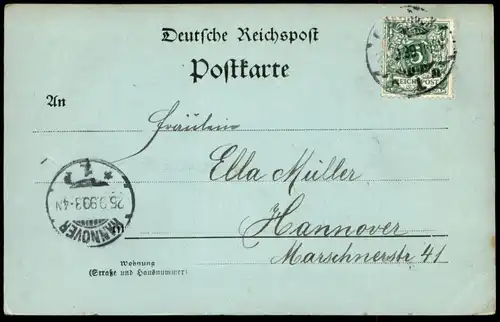 Deutsche Reichspost
Postkarte
5
REICHSPOST
An
Fräulein
Ella Müller
Hannover
Marschnerstr 41
Wohnung
(Straße und Hausnummer)
HANNOVER
1
3-4N